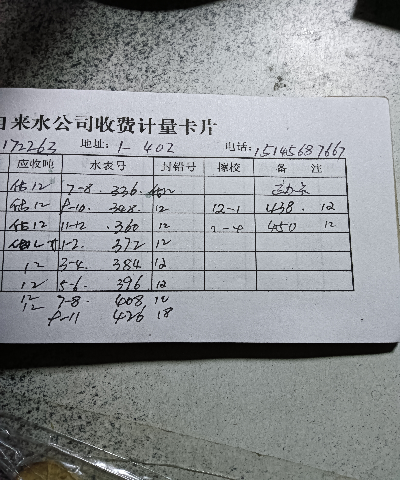 自来水公司收费计量卡片
172263 地址: 1-402 电话: 15145687667
应收吨 水表号 封铅号 擦校 备 注
估12 7-8. 336. 估12
估12 9-10. 348. 12 12-1 438. 12
估12 11-12 .360 12 2-4 450 12
1-2. 372 12
12 3-4. 384 12
12 5-6. 396 12
12 7-8. 408 12
12 9-11 426 18